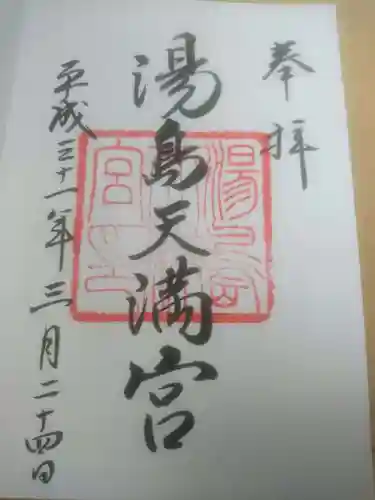 奉拝
湯島天満宮
平成三十一年三月二十四日